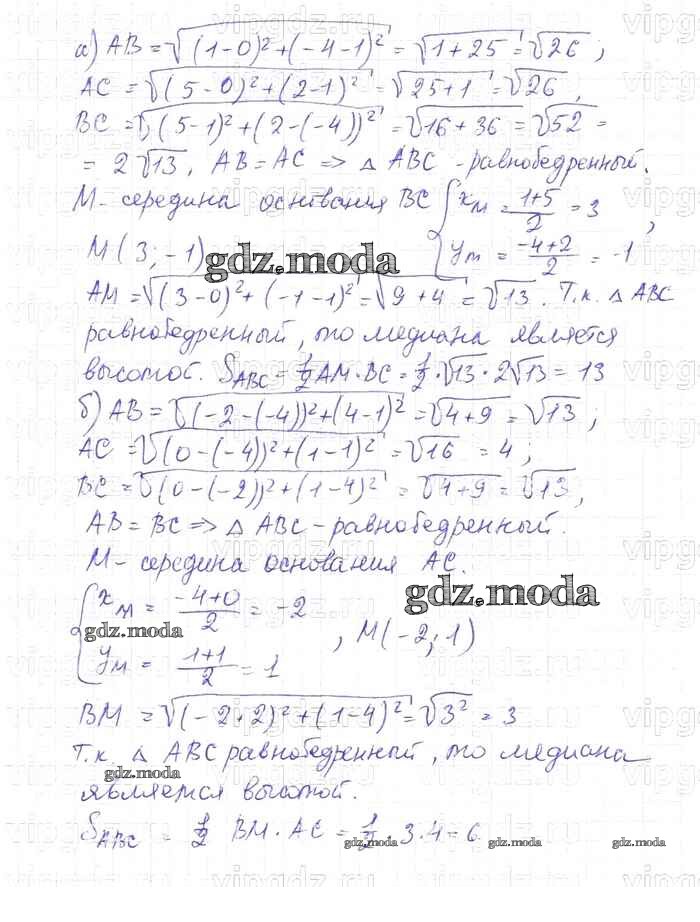 а) AB = √((1-0)²+(-4-1)²) = √(1+25) = √26 ;
AC = √((5-0)²+(2-1)²) = √(25+1) = √26 ,
BC = √((5-1)²+(2-(-4))²) = √(16+36) = √52 =
= 2√13 , AB = AC => △ ABC - равнобедренный.
M - середина основания BC { xм = (1+5)/2 = 3
yм = (-4+2)/2 = -1 ,
M ( 3 ; -1 )
gdz.moda
AM = √((3-0)²+(-1-1)²) = √(9+4) = √13 . Т.к. △ ABC
равнобедренный, то медиана является
высотой. S ABC = 1/2 AM · BC = 1/2 · √13 · 2√13 = 13
б) AB = √((-2-(-4))²+(4-1)²) = √(4+9) = √13 ;
AC = √((0-(-4))²+(1-1)²) = √16 = 4 ;
BC = √((0-(-2))²+(1-4)²) = √(4+9) = √13 ,
AB = BC => △ ABC - равнобедренный.
M - середина основания AC.
{ xм = (-4+0)/2 = -2
gdz.moda
gdz.moda
yм = (1+1)/2 = 1 , M(-2; 1)
BM = √((-2+2)²+(1-4)²) = √3² = 3
Т.к. △ ABC равнобедренный, то медиана
gdz.moda
является высотой.
S ABC = 1/2 BM · AC = 1/2 · 3·4 = 6
gdz.moda gdz.moda gdz.moda gdz.moda